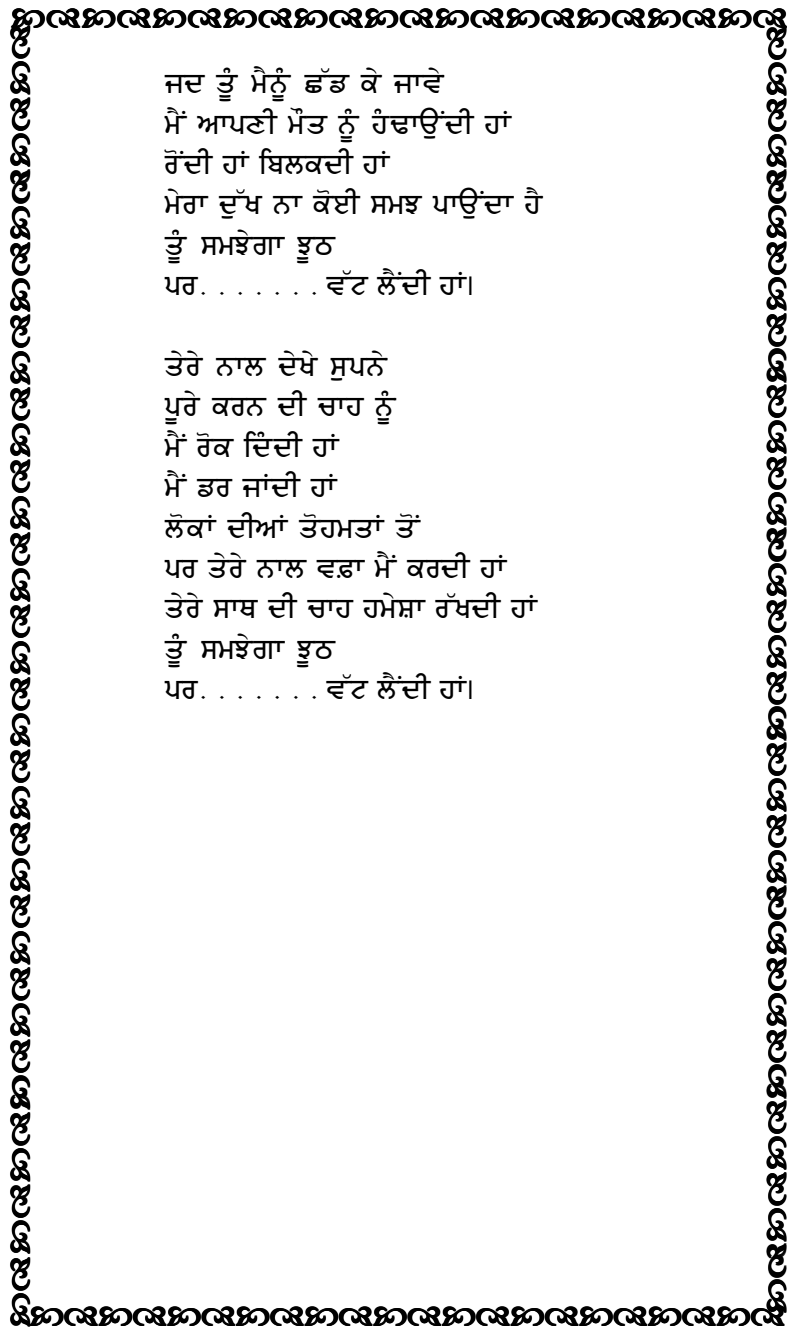 ਜਦ ਤੂੰ ਮੈਨੂੰ ਛੱਡ ਕੇ ਜਾਵੇ
ਮੈਂ ਆਪਣੀ ਮੌਤ ਨੂੰ ਹੰਢਾਉਂਦੀ ਹਾਂ
ਰੋਂਦੀ ਹਾਂ ਬਿਲਕਦੀ ਹਾਂ
ਮੇਰਾ ਦੁੱਖ ਨਾ ਕੋਈ ਸਮਝ ਪਾਉਂਦਾ ਹੈ
ਤੂੰ ਸਮਝੇਗਾ ਝੂਠ
ਪਰ. . . . . . . ਵੱਟ ਲੈਂਦੀ ਹਾਂ।
ਤੇਰੇ ਨਾਲ ਦੇਖੇ ਸੁਪਨੇ
ਪੂਰੇ ਕਰਨ ਦੀ ਚਾਹ ਨੂੰ
ਮੈਂ ਰੋਕ ਦਿੰਦੀ ਹਾਂ
ਮੈਂ ਡਰ ਜਾਂਦੀ ਹਾਂ
ਲੋਕਾਂ ਦੀਆਂ ਤੋਹਮਤਾਂ ਤੋਂ
ਪਰ ਤੇਰੇ ਨਾਲ ਵਫ਼ਾ ਮੈਂ ਕਰਦੀ ਹਾਂ
ਤੇਰੇ ਸਾਥ ਦੀ ਚਾਹ ਹਮੇਸ਼ਾ ਰੱਖਦੀ ਹਾਂ
ਤੂੰ ਸਮਝੇਗਾ ਝੂਠ
ਪਰ. . . . . . . ਵੱਟ ਲੈਂਦੀ ਹਾਂ।